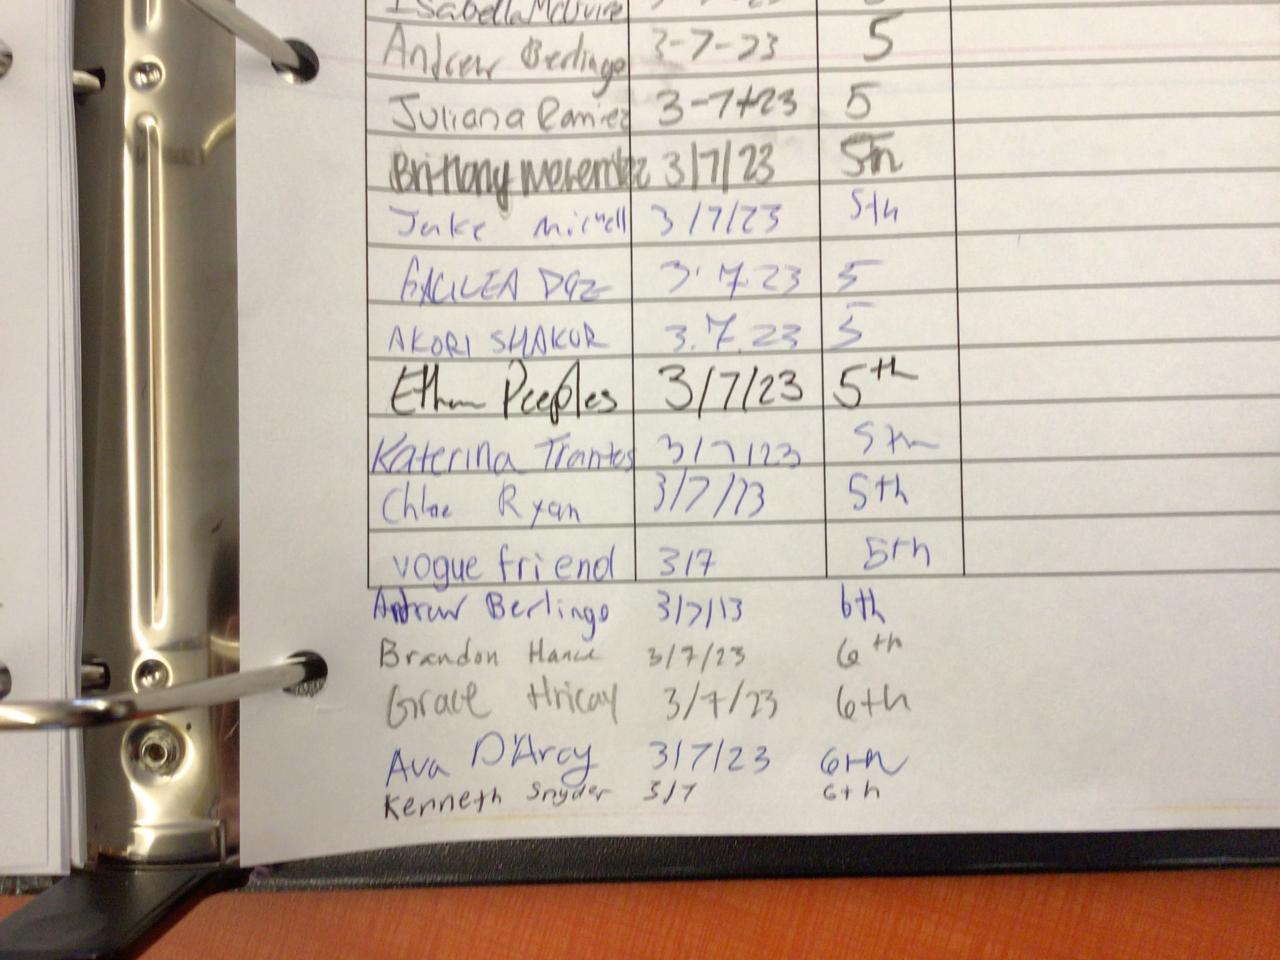 Isabella McGuire
Andrew Berlingo 3-7-23 5
Juliana Ramirez 3-7-23 5
Brittany 3/7/23 5th
Jake 3/7/23 5th
GALILEA DIAZ 3.7.23 5
AKORI SHAKUR 3.7.23 5
Ethan Peeples 3/7/23 5th
Katerina Trantos 3/7/23 5th
Chloe Ryan 3/7/23 5th
vogue friend 3/7 5th
Andrew Berlingo 3/7/13 6th
Brandon Hance 3/7/23 6th
Grace Hricay 3/7/23 6th
Ava D'Arcy 3/7/23 6th
Kenneth Snyder 3/7 6th